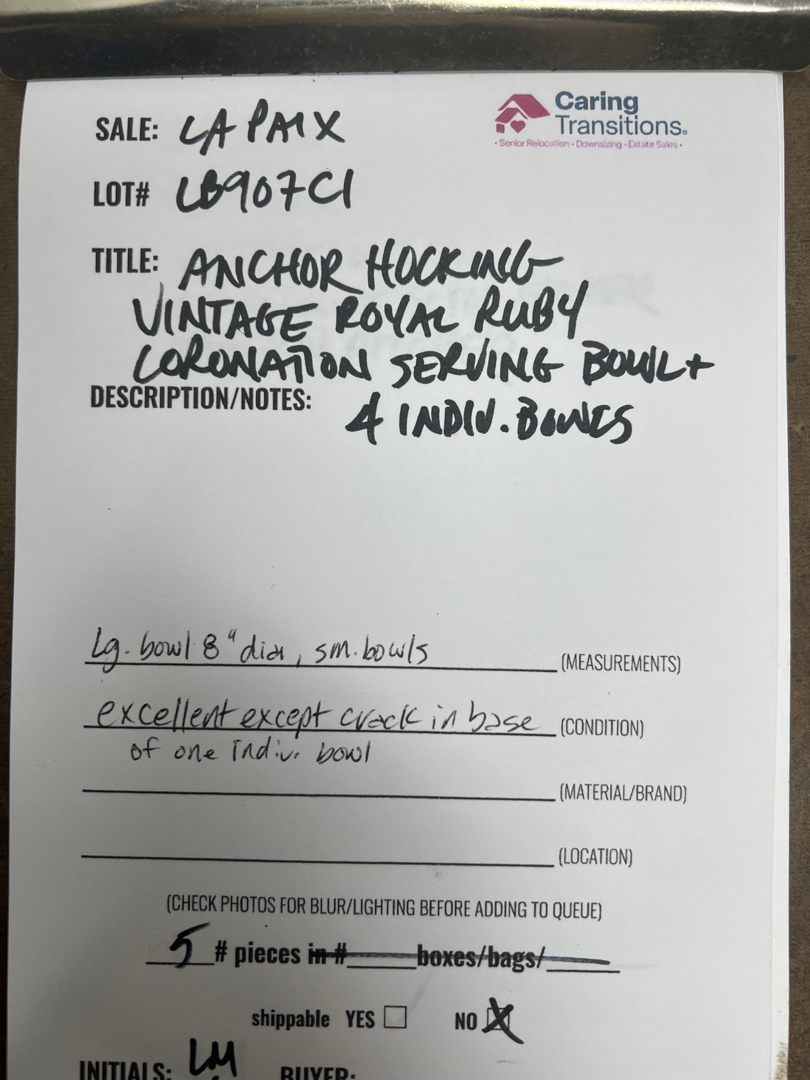 Caring
Transitions.
• Senior Relocation • Downsizing • Estate Sales •
SALE: LA PAIX
LOT# LB907C1
TITLE: ANCHOR HOCKING
VINTAGE ROYAL RUBY
CORONATION SERVING BOWL +
DESCRIPTION/NOTES: 4 INDIV. BOWLS
Lg. bowl 8" dia, sm. bowls (MEASUREMENTS)
excellent except crack in base (CONDITION)
of one indiv. bowl
(MATERIAL/BRAND)
(LOCATION)
(CHECK PHOTOS FOR BLUR/LIGHTING BEFORE ADDING TO QUEUE)
5 # pieces in # boxes/bags/
shippable YES NO X
INITIALS: LM BUYER: